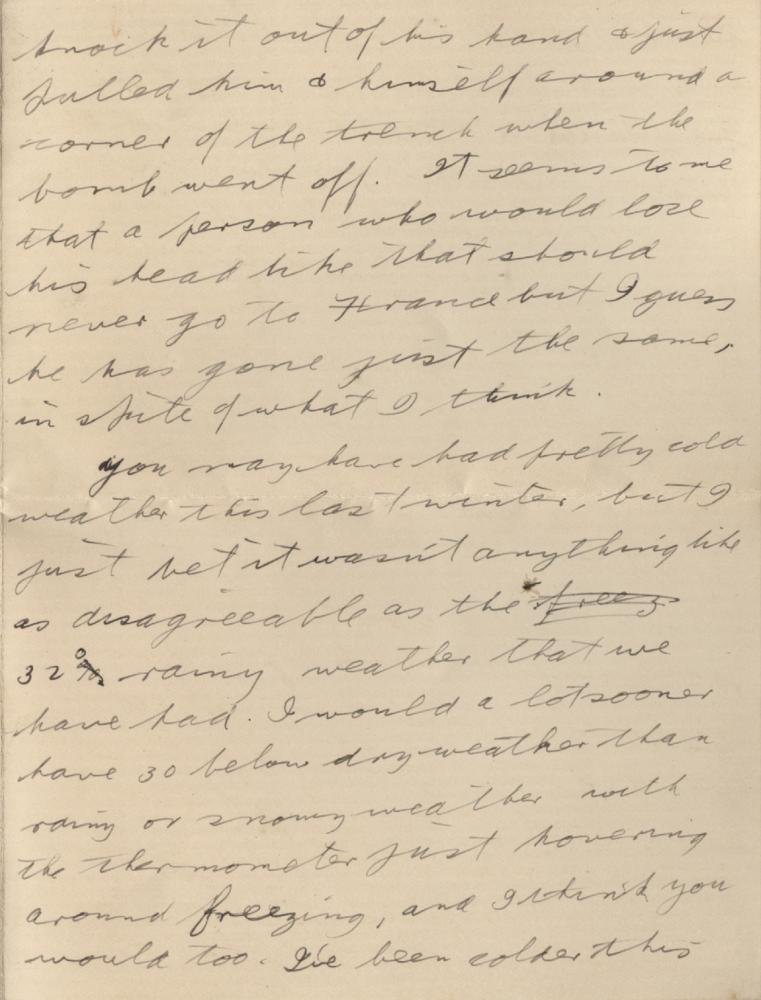 knock it out of his hand & just
pulled him & himself around a
corner of the trench when the
bomb went off. It seems to me
that a person who would lose
his head like that should
never go to France but I guess
he has gone just the same,
in spite of what I think.
you may have had pretty cold
weather this last winter, but I
just bet it wasn't anything like
as disagreeable as the freez
32° rainy weather that we
have had. I would a lot sooner
have 30 below dry weather than
rainy or snowy weather with
the thermometer just hovering
around freezing, and I think you
would too. I've been colder this